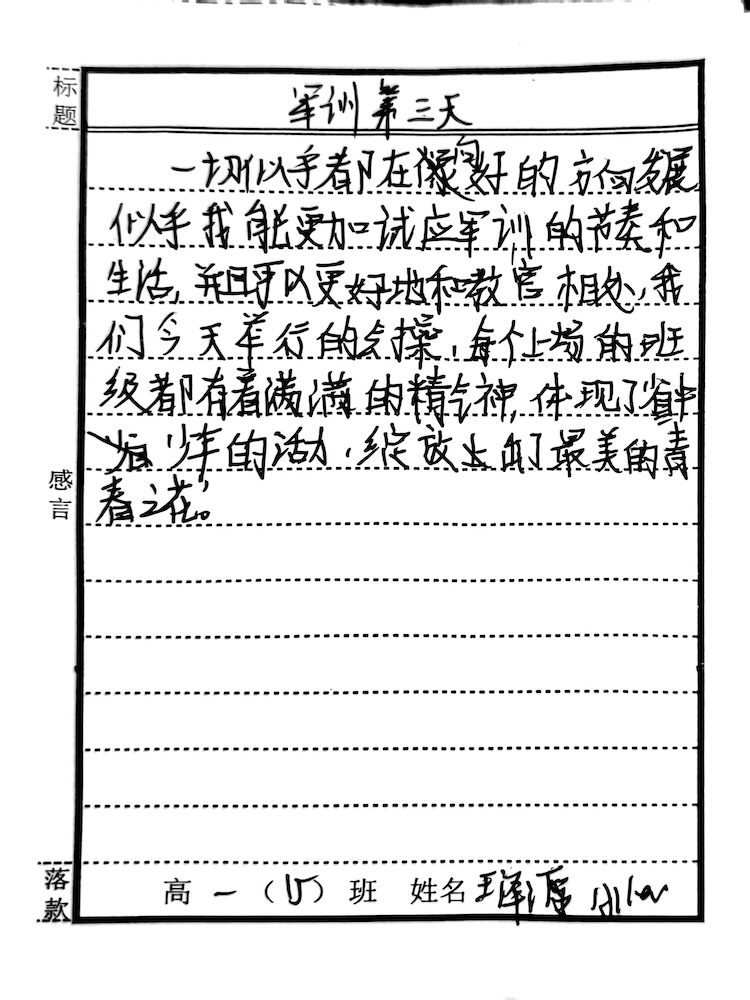 标题
军训第三天
一切似乎都在向好的方向发展
似乎我能更加试应军训的节奏和
生活,并且可以更好地和教官相处,我
们今天举行的会操,每个上场的班
级都有着满满的精气神,体现了省中
少年的活力,绽放出了最美的青
春之花。
感言
落款
高一(15)班 姓名